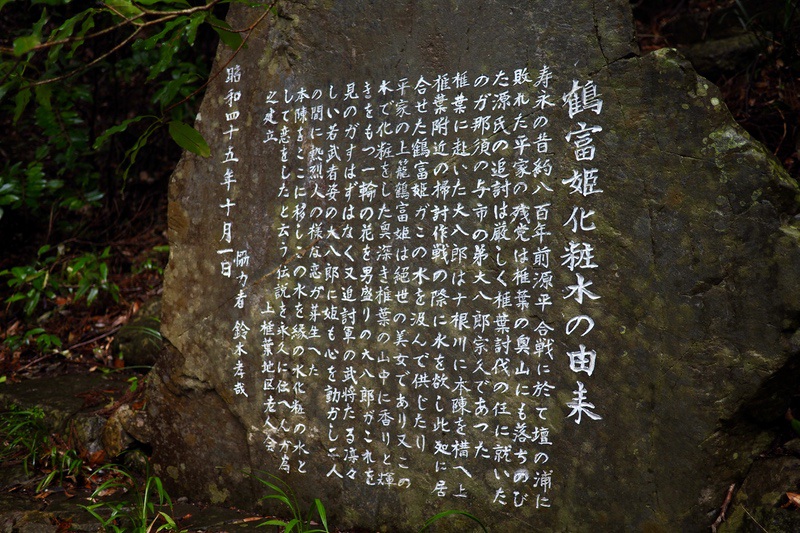 鶴富姫化粧水の由来
寿永の昔約八百年前源平合戦に於て壇の浦に
敗れた平家の残党は椎葉の奥山にも落ちのび
た源氏の追討は厳しく椎葉討伐の任に就いた
のが那須の与市の弟大八郎宗久であつた
椎葉に赴いた大八郎は十根川に本陣を構へ上
椎葉附近の掃討作戦の際に水を欲し此処に居
合せた鶴富姫がこの水を汲んで供じたり
平家の上﨟鶴富姫は絶世の美女であり又この
水で化粧をした奥深き椎葉の山中に香りと輝
きをもつ一輪の花を男盛りの大八郎がこれを
見のがすはずはなく又追討軍の武将たる凜々
しい若武者姿の大八郎に姫も心を動かし二人
の間に熱烈人の様な恋が芽生へた
本陣をここに移しこの水を縁の水化粧の水と
して恋をしたと云う伝説を永久に伝へんが為
之建立　上椎葉地区老人会
昭和四十五年十月一日
協力者　鈴木孝哉